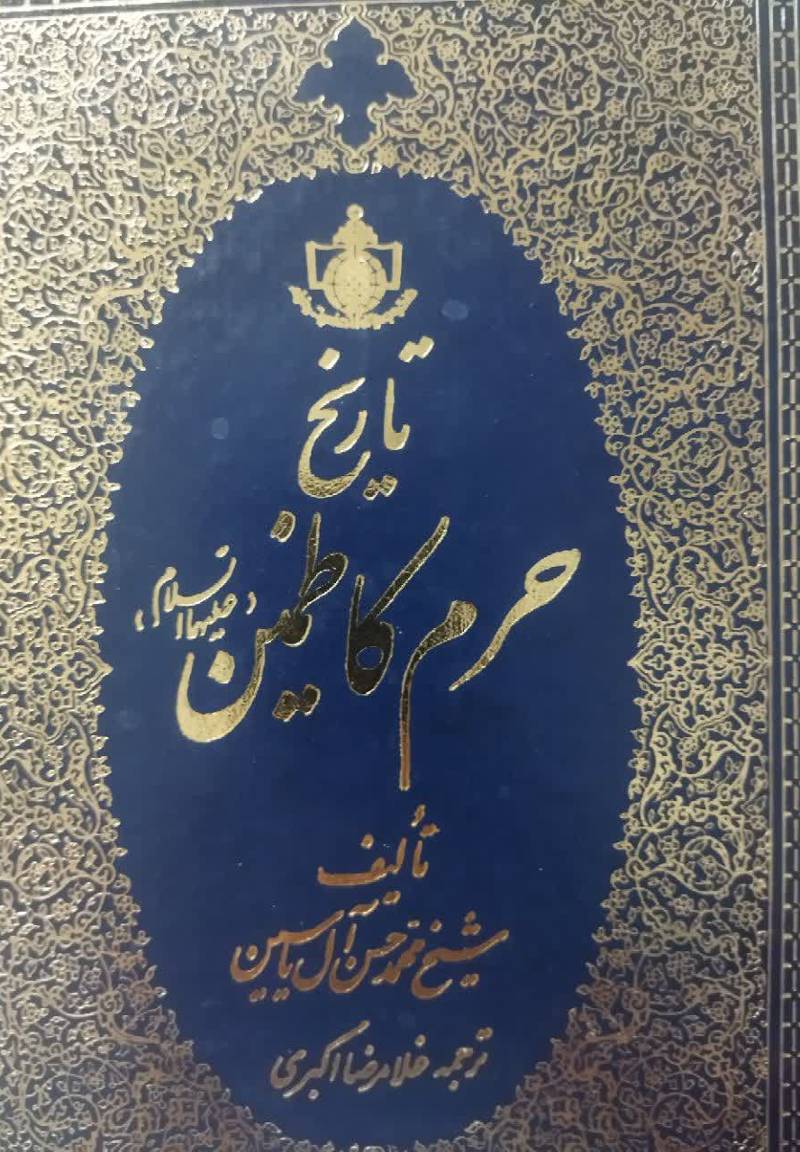 تاریخ
حرم کاظمین (علیهما السلام)
تألیف
شیخ محمد حسن آل یاسین
ترجمه غلامرضا اکبری